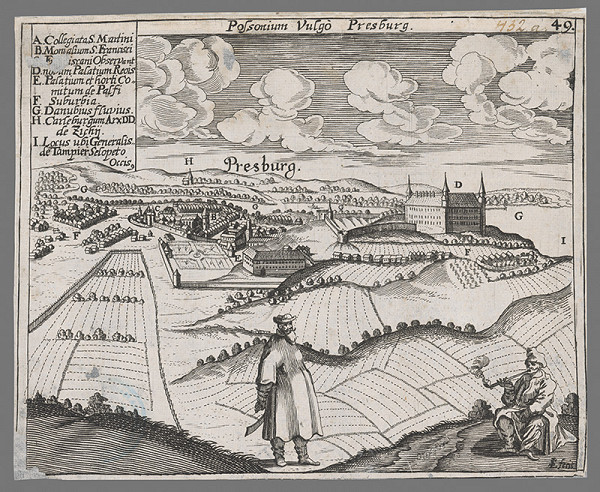 Possonium Vulgò Presburg.
452 a.
49.
A. Collegiata S. Martini
B. Monasium S. Francisci
iscani Observant
D. novum Palatium Regis
E. Palatium et horti Co-
mitum de Palfi
F. Suburbia.
G. Danubius fluvius.
H. Carleburgum Arx DD
de Zichij.
I. Locus ubi Generalis.
de Tampier Selopeto
Occis9
H
Presburg.
G
D
G
F
F
I
Æ. fecit